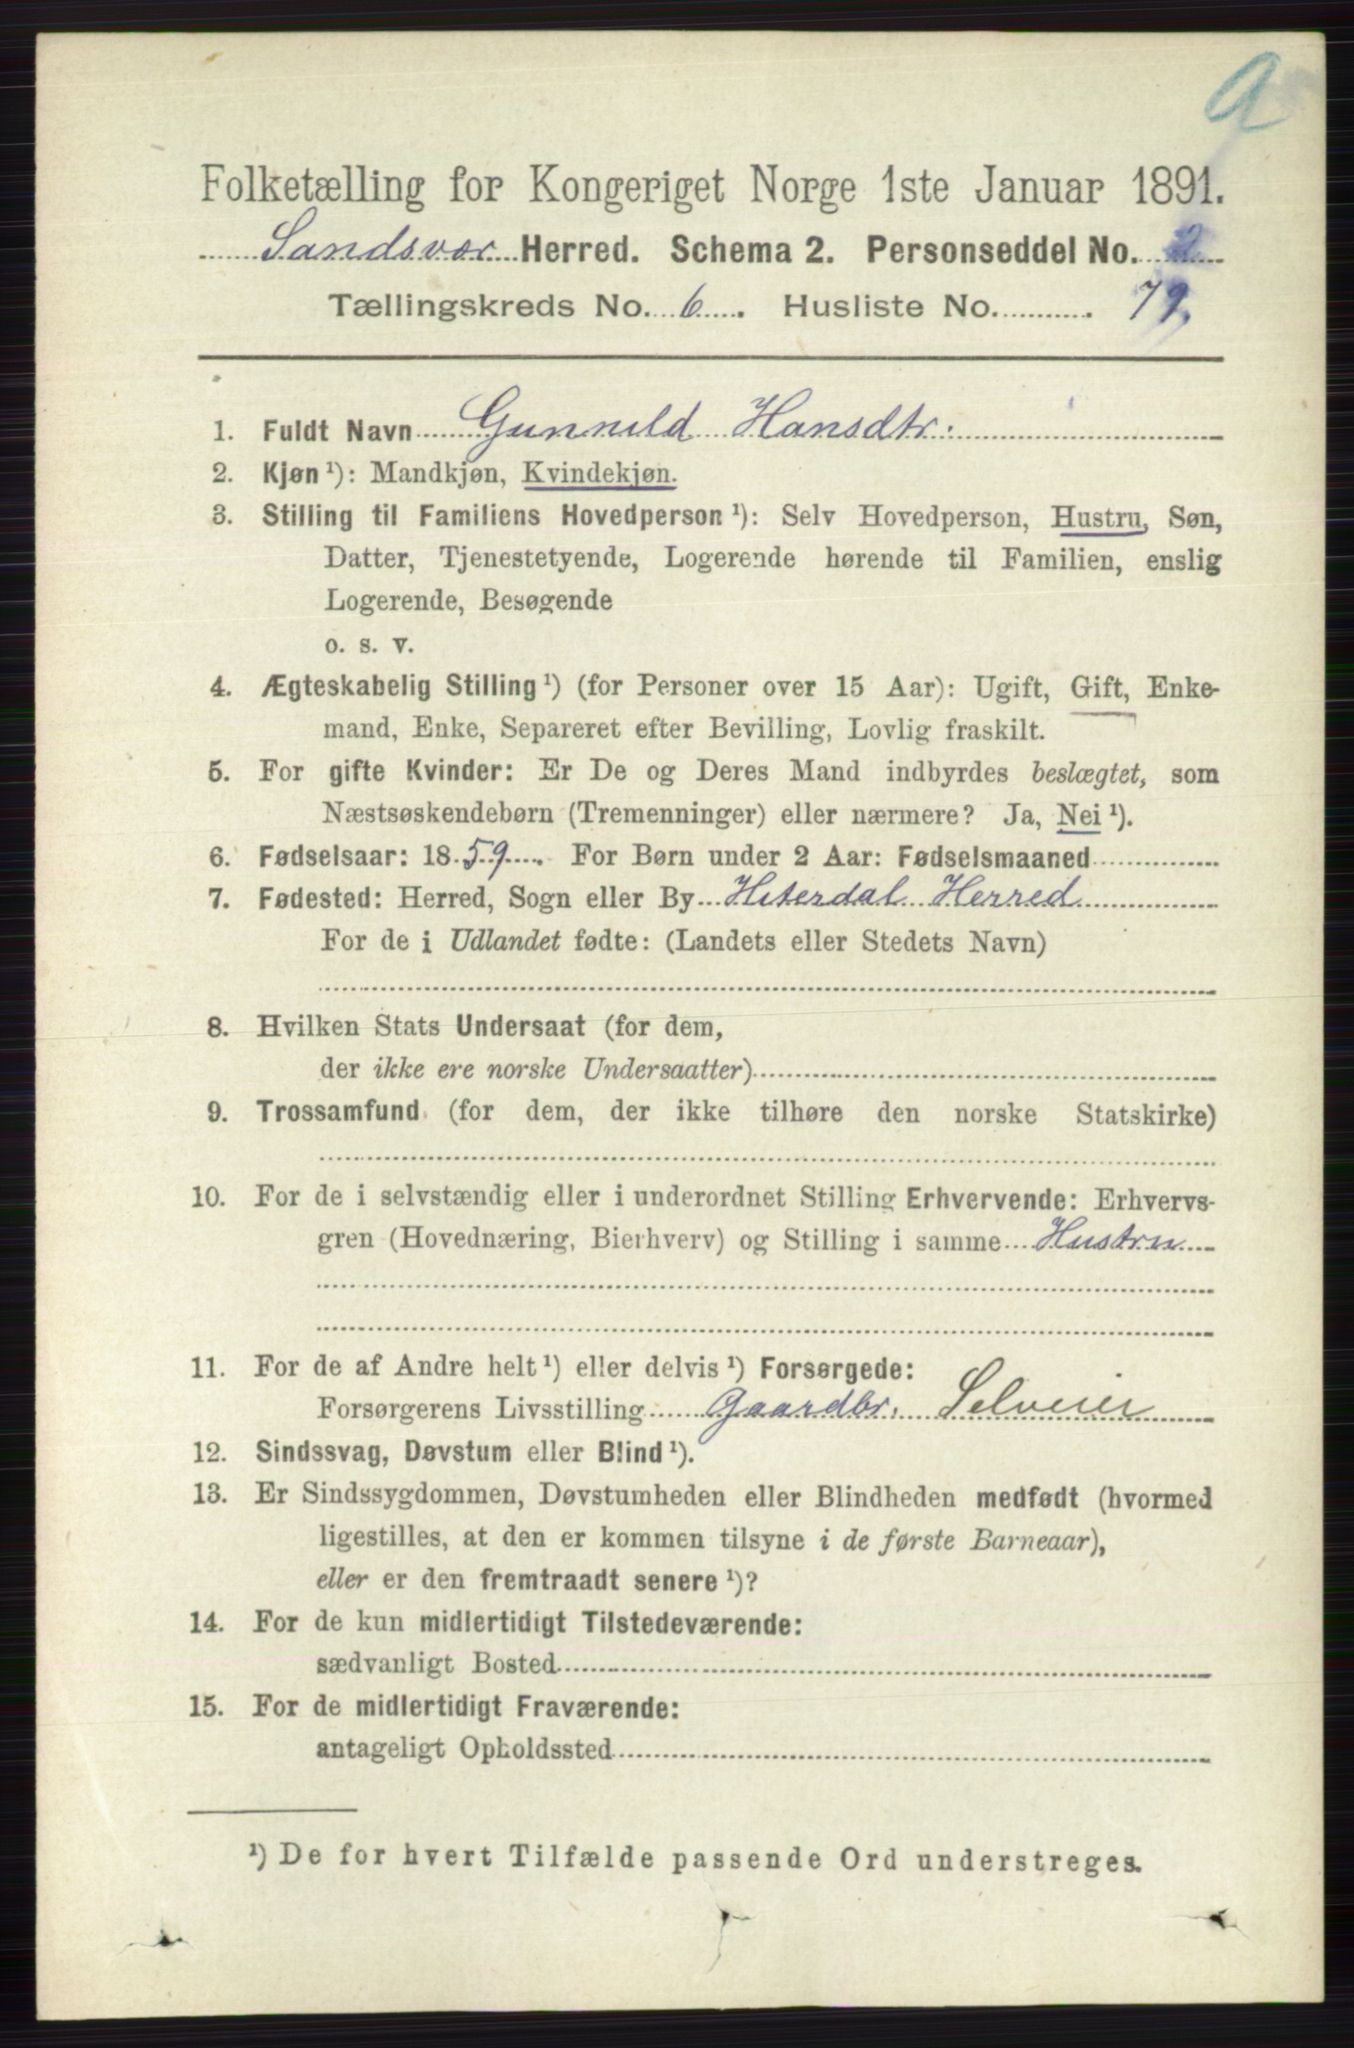 a
Folketælling for Kongeriget Norge 1ste Januar 1891.
Sandsvær Herred. Schema 2. Personseddel No. 2
Tællingskreds No. 6. Husliste No. 79.
1. Fuldt Navn Gunnild Hansdtr.
2. Kjøn ¹): Mandkjøn, Kvindekjøn.
3. Stilling til Familiens Hovedperson ¹): Selv Hovedperson, Hustru, Søn,
Datter, Tjenestetyende, Logerende hørende til Familien, enslig
Logerende, Besøgende
o. s. v.
4. Ægteskabelig Stilling ¹) (for Personer over 15 Aar): Ugift, Gift, Enke-
mand, Enke, Separeret efter Bevilling, Lovlig fraskilt.
5. For gifte Kvinder: Er De og Deres Mand indbyrdes beslægtet, som
Næstsøskendebørn (Tremenninger) eller nærmere? Ja, Nei ¹).
6. Fødselsaar: 1859. For Børn under 2 Aar: Fødselsmaaned
7. Fødested: Herred, Sogn eller By Hiterdal Herred
For de i Udlandet fødte: (Landets eller Stedets Navn)
8. Hvilken Stats Undersaat (for dem,
der ikke ere norske Undersaatter)
9. Trossamfund (for dem, der ikke tilhøre den norske Statskirke)
10. For de i selvstændig eller i underordnet Stilling Erhvervende: Erhvervs-
gren (Hovednæring, Bierhverv) og Stilling i samme Hustru
11. For de af Andre helt ¹) eller delvis ¹) Forsørgede:
Forsørgerens Livsstilling Gaardbr. Selveier
12. Sindssvag, Døvstum eller Blind ¹).
13. Er Sindssygdommen, Døvstumheden eller Blindheden medfødt (hvormed
ligestilles, at den er kommen tilsyne i de første Barneaar),
eller er den fremtraadt senere ¹)?
14. For de kun midlertidigt Tilstedeværende:
sædvanligt Bosted
15. For de midlertidigt Fraværende:
antageligt Opholdssted
¹) De for hvert Tilfælde passende Ord understreges.